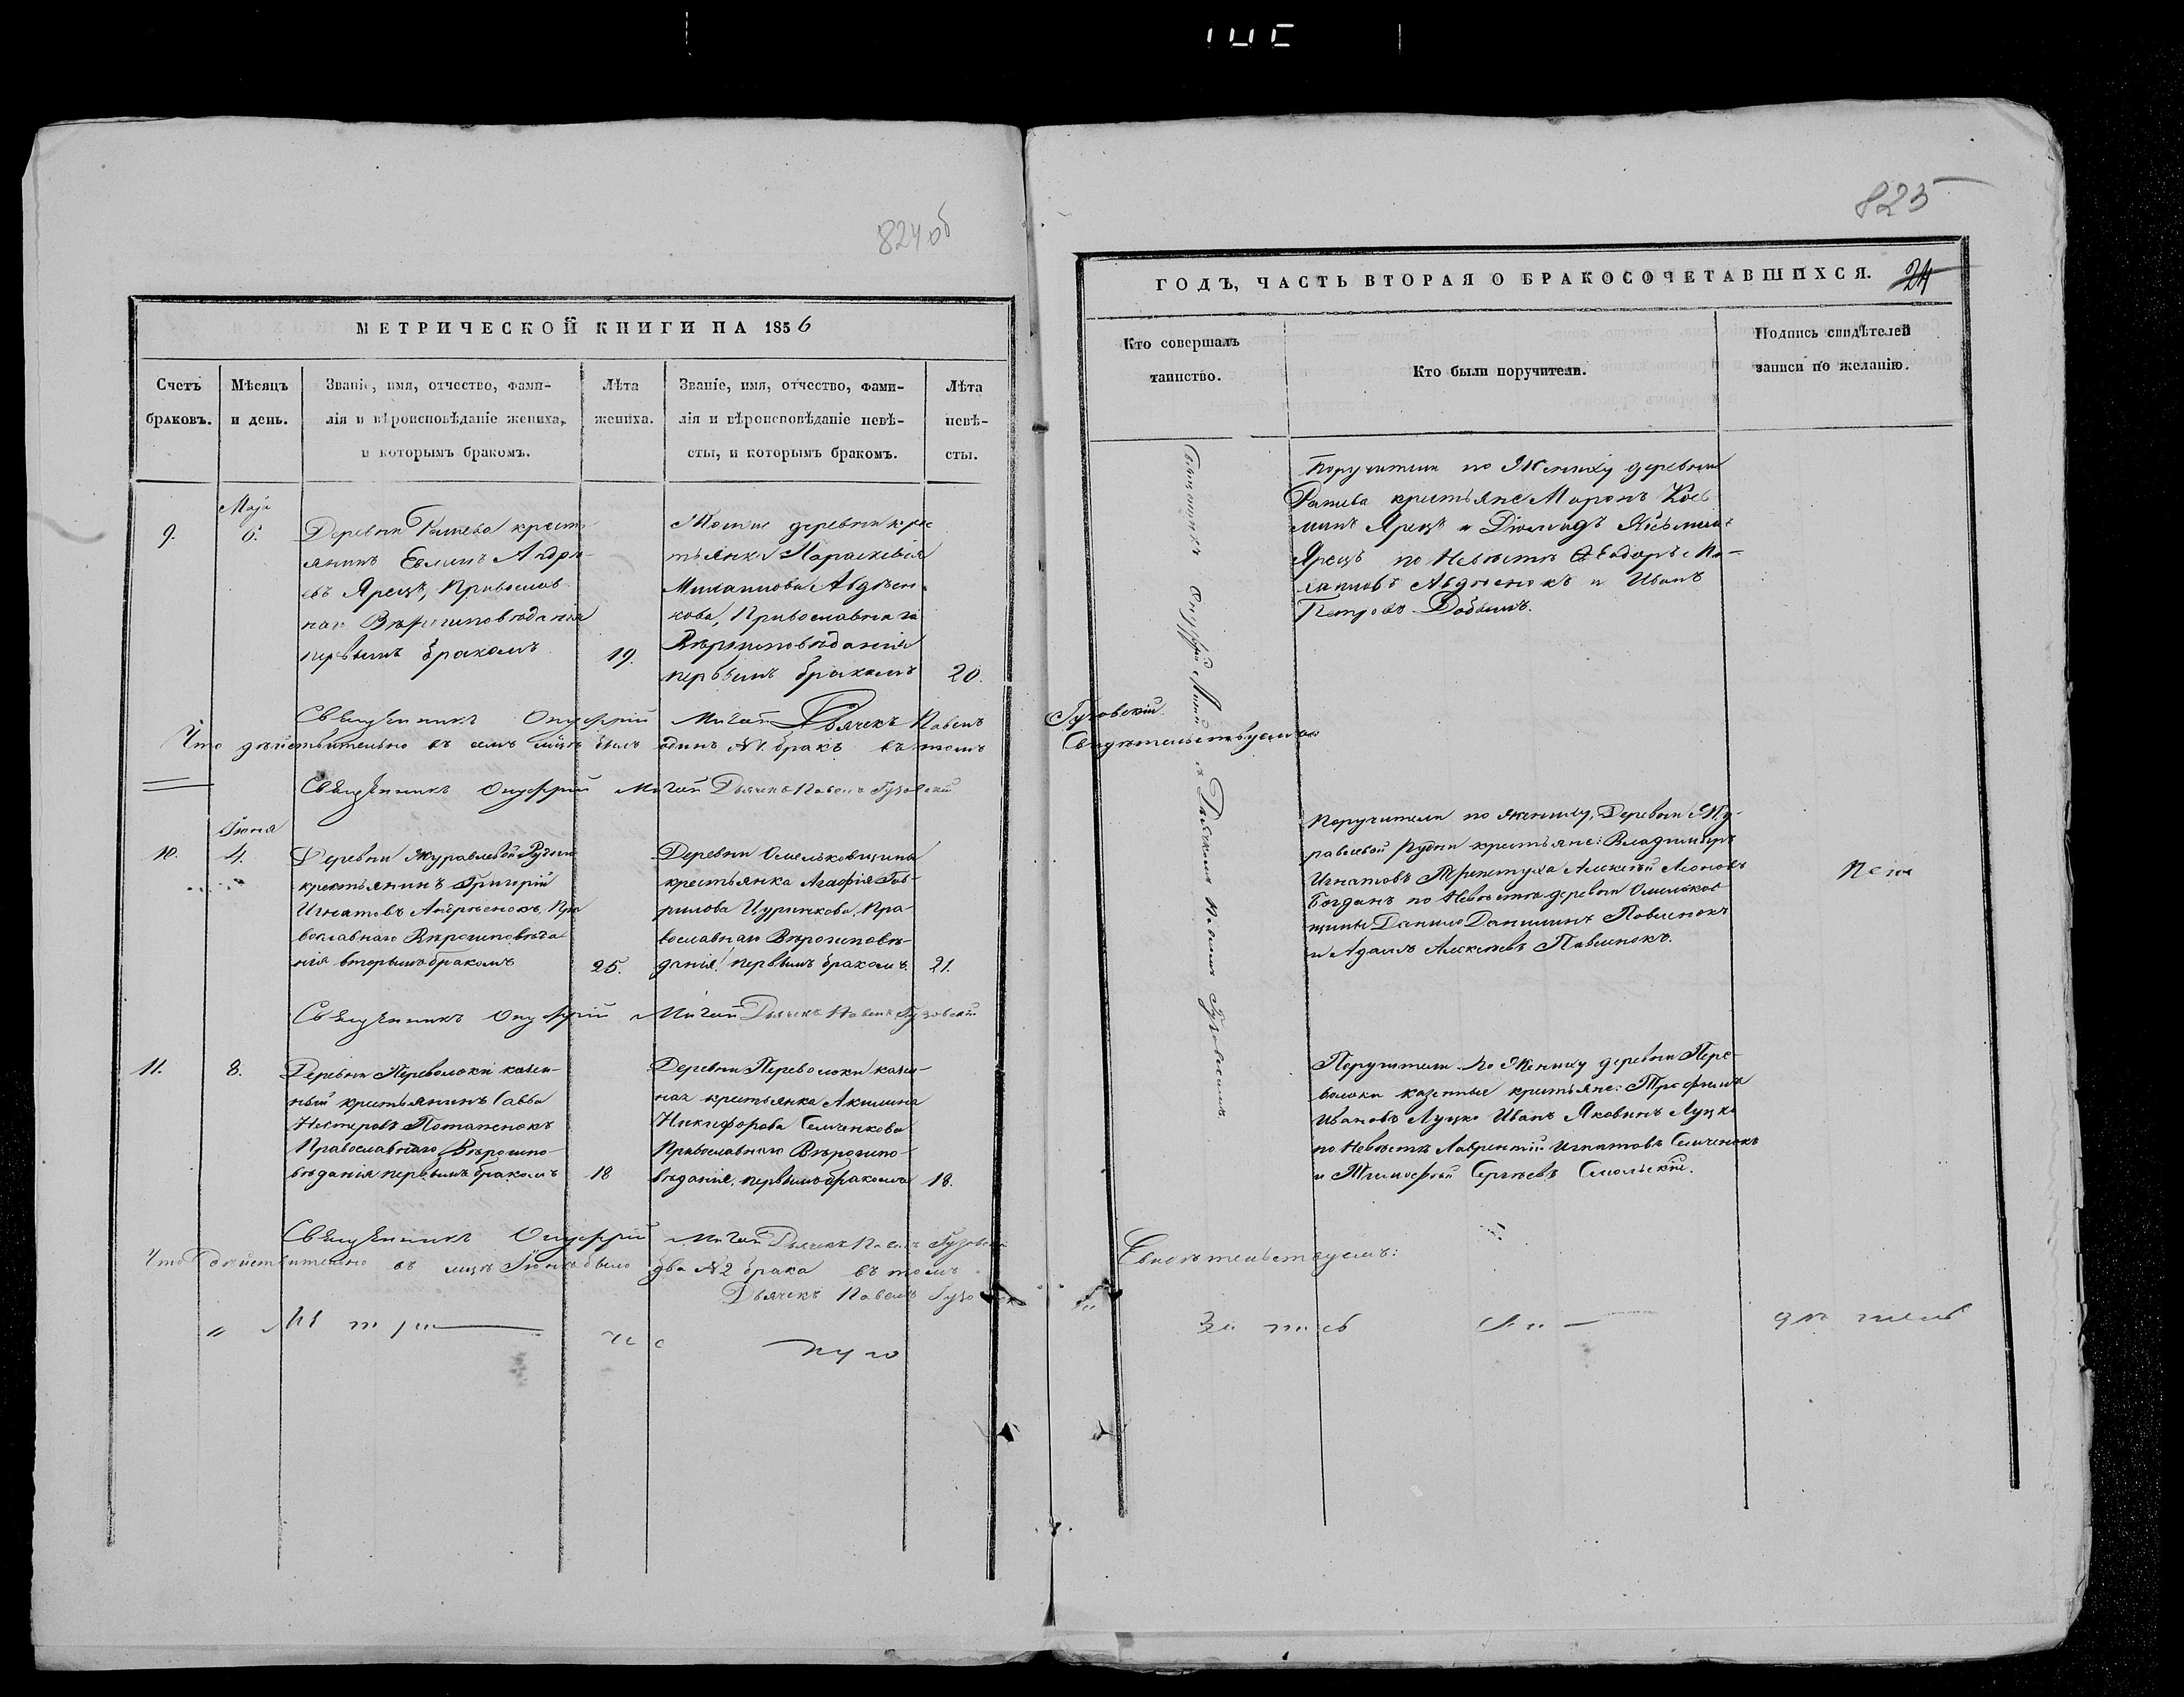 824 об
МЕТРИЧЕСКОЙ КНИГИ НА 1856
Счетъ браковъ.
Мѣсяцъ и день.
Званіе, имя, отчество, фами-
лія и вѣроисповѣданіе жениха,
и которымъ бракомъ.
Лѣта жениха.
Званіе, имя, отчество, фами-
лія и вѣроисповѣданіе невѣ-
сты, и которымъ бракомъ.
Лѣта невѣ-
сты.
9.
Маја
6.
Деревни крестъ-
янинъ Андре-
евъ Ярецъ, Православ-
наго Вѣроисповѣданія
первымъ бракомъ
19.
деревни крес-
тьянка Параскевія
Авдѣен-
кова, Православнаго
Вѣроисповѣданія
первымъ бракомъ
20.
Священникъ Онуфрій Мигай Дьячекъ Павелъ Гузовскій
Что дѣйствительно въ семъ мцѣ былъ одинъ №1. бракъ въ томъ Свидѣтельствуемъ
Священникъ Онуфрій Мигай Дьячекъ Павелъ Гузовскій
10.
Іюня
4.
Деревни Журавлевой Рудни
крестьянинъ Григорій
Игнатовъ Андрѣенокъ, Пра
вославнаго Вѣроисповѣда
нія вторымъ бракомъ
25.
Деревни Омельковщины
крестьянка Агафія Гав-
рилова Цуринкова, Пра-
вославнаго Вѣроисповѣ-
данія, первымъ бракомъ.
21.
Священникъ Онуфрій Мигай Дьячекъ Павелъ Гузовскій
11.
8.
Деревни Переволоки казен-
ный крестьянинъ Савва
Нестеровъ Потапенокъ
Православнаго Вѣроиспо-
вѣданія первымъ бракомъ
18
Деревни Переволоки казен-
ная крестьянка Акилина
Никифорова Семченкова
Православнаго Вѣроиспо-
вѣданія, первымъ бракомъ
18.
Священникъ Онуфрій Мигай Дьячекъ Павелъ Гузовскій
Что дѣйствительно въ мцѣ Іюнѣ было два №2 брака въ томъ Свидѣтельствуемъ:
Дьячекъ Павелъ
825
ГОДЪ, ЧАСТЬ ВТОРАЯ О БРАКОСОЧЕТАВШИХСЯ.
24
Кто совершалъ
таинство.
Кто были поручители.
Подпись свидѣтелей
записи по желанію.
Священникъ Онуфрій Мигай съ Дьячкомъ Павломъ Гузовскимъ
Поручители по Жениху деревни
крестьяне Миронъ
Ярецъ и
Ярецъ по Невѣстѣ
Авдѣенокъ и Иванъ
Петровъ
Поручители по жениху, Деревни Жу-
равлевой Рудни крестьяне: Владимиръ
Игнатовъ Алексѣй Леоновъ
Богданъ по Невѣстѣ деревни Омельков-
щины Данило Даниловъ Павленокъ
и Адамъ Алексѣевъ Павленокъ.
Поручители по Жениху деревни Пере-
волоки казенные крестьяне: Трофимъ
Ивановъ Луцко Иванъ Яковлевъ Луцко
по Невѣстѣ Лаврентій Игнатовъ Семченокъ
и Тимофей Сергѣевъ Смольскій.